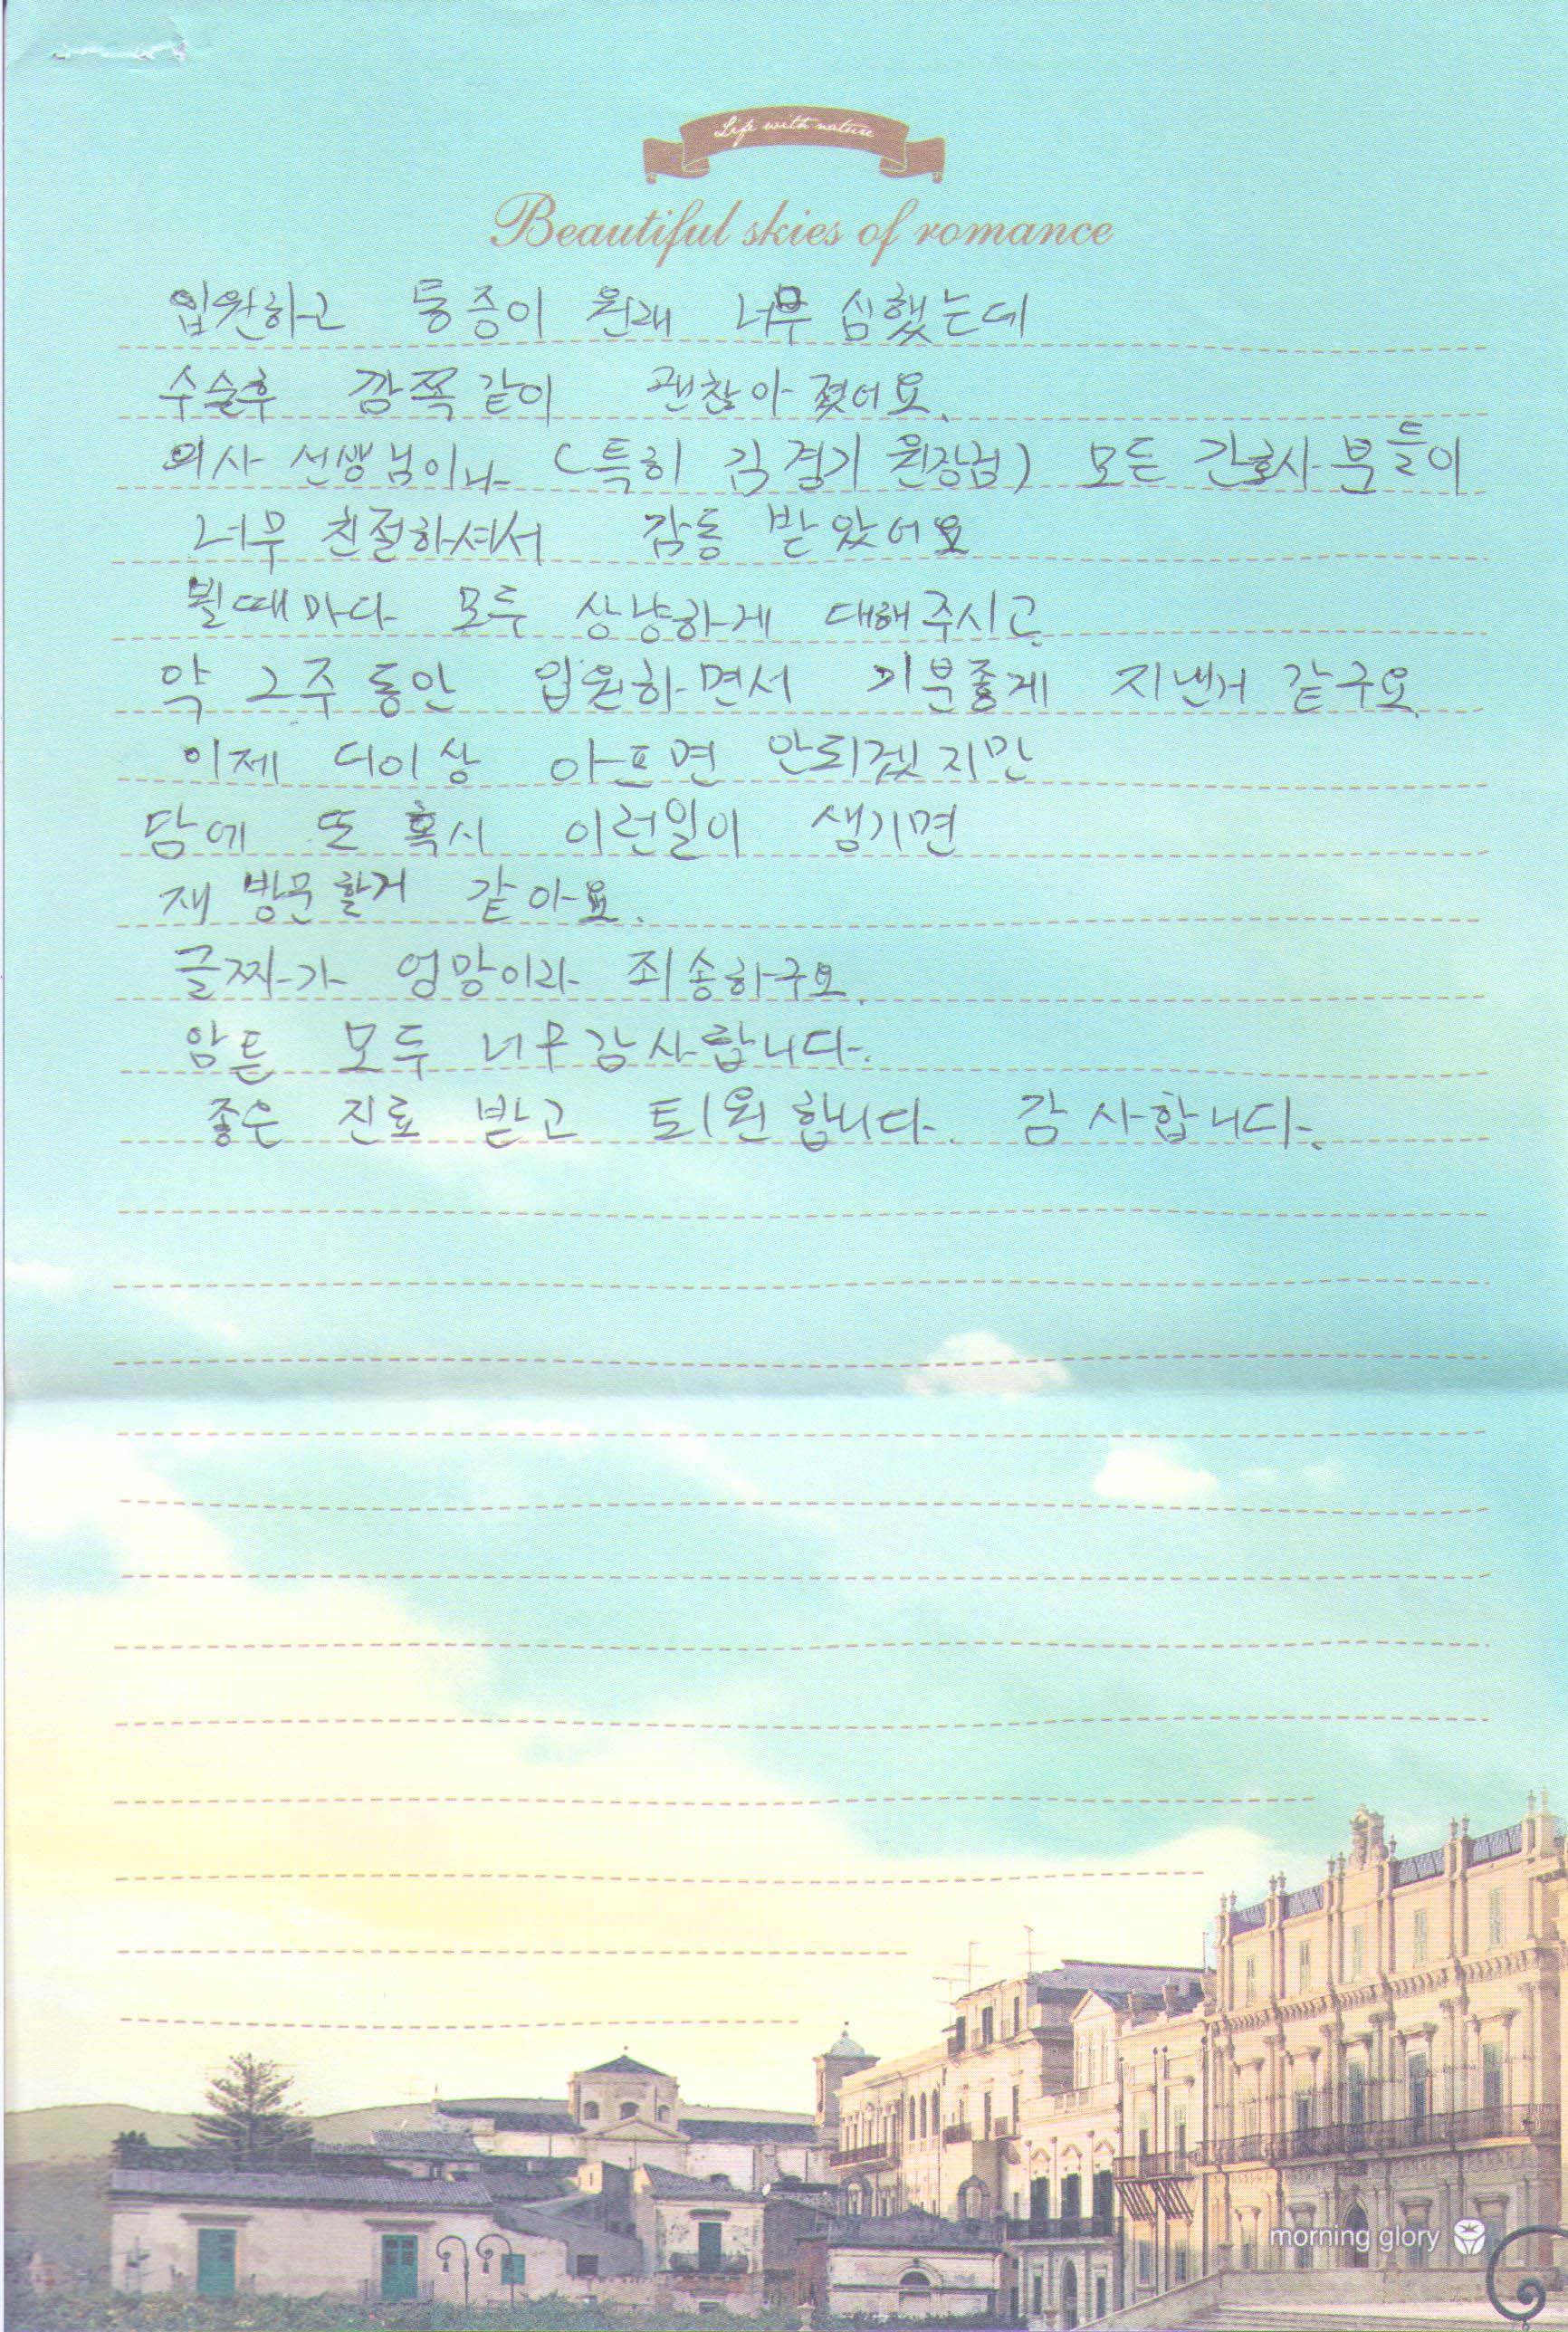 Life with nature
Beautiful skies of romance
입원하고 통증이 원래 너무 심했는데
수술후 깜쪽같이 괜찮아 졌어요.
의사 선생님이나 (특히 김경기 원장님) 모든 간호사분들이
너무 친절하셔서 감동 받았어요
뵐때마다 모두 상냥하게 대해주시고
약 2주 동안 입원하면서 기분좋게 지낸거 같구요
이제 더이상 아프면 안되겠지만
담에 또 혹시 이런일이 생기면
재 방문할거 같아요.
글짜가 엉망이라 죄송하구요.
암튼 모두 너무감사합니다.
좋은 진료 받고 퇴원합니다. 감사합니다.
morning glory